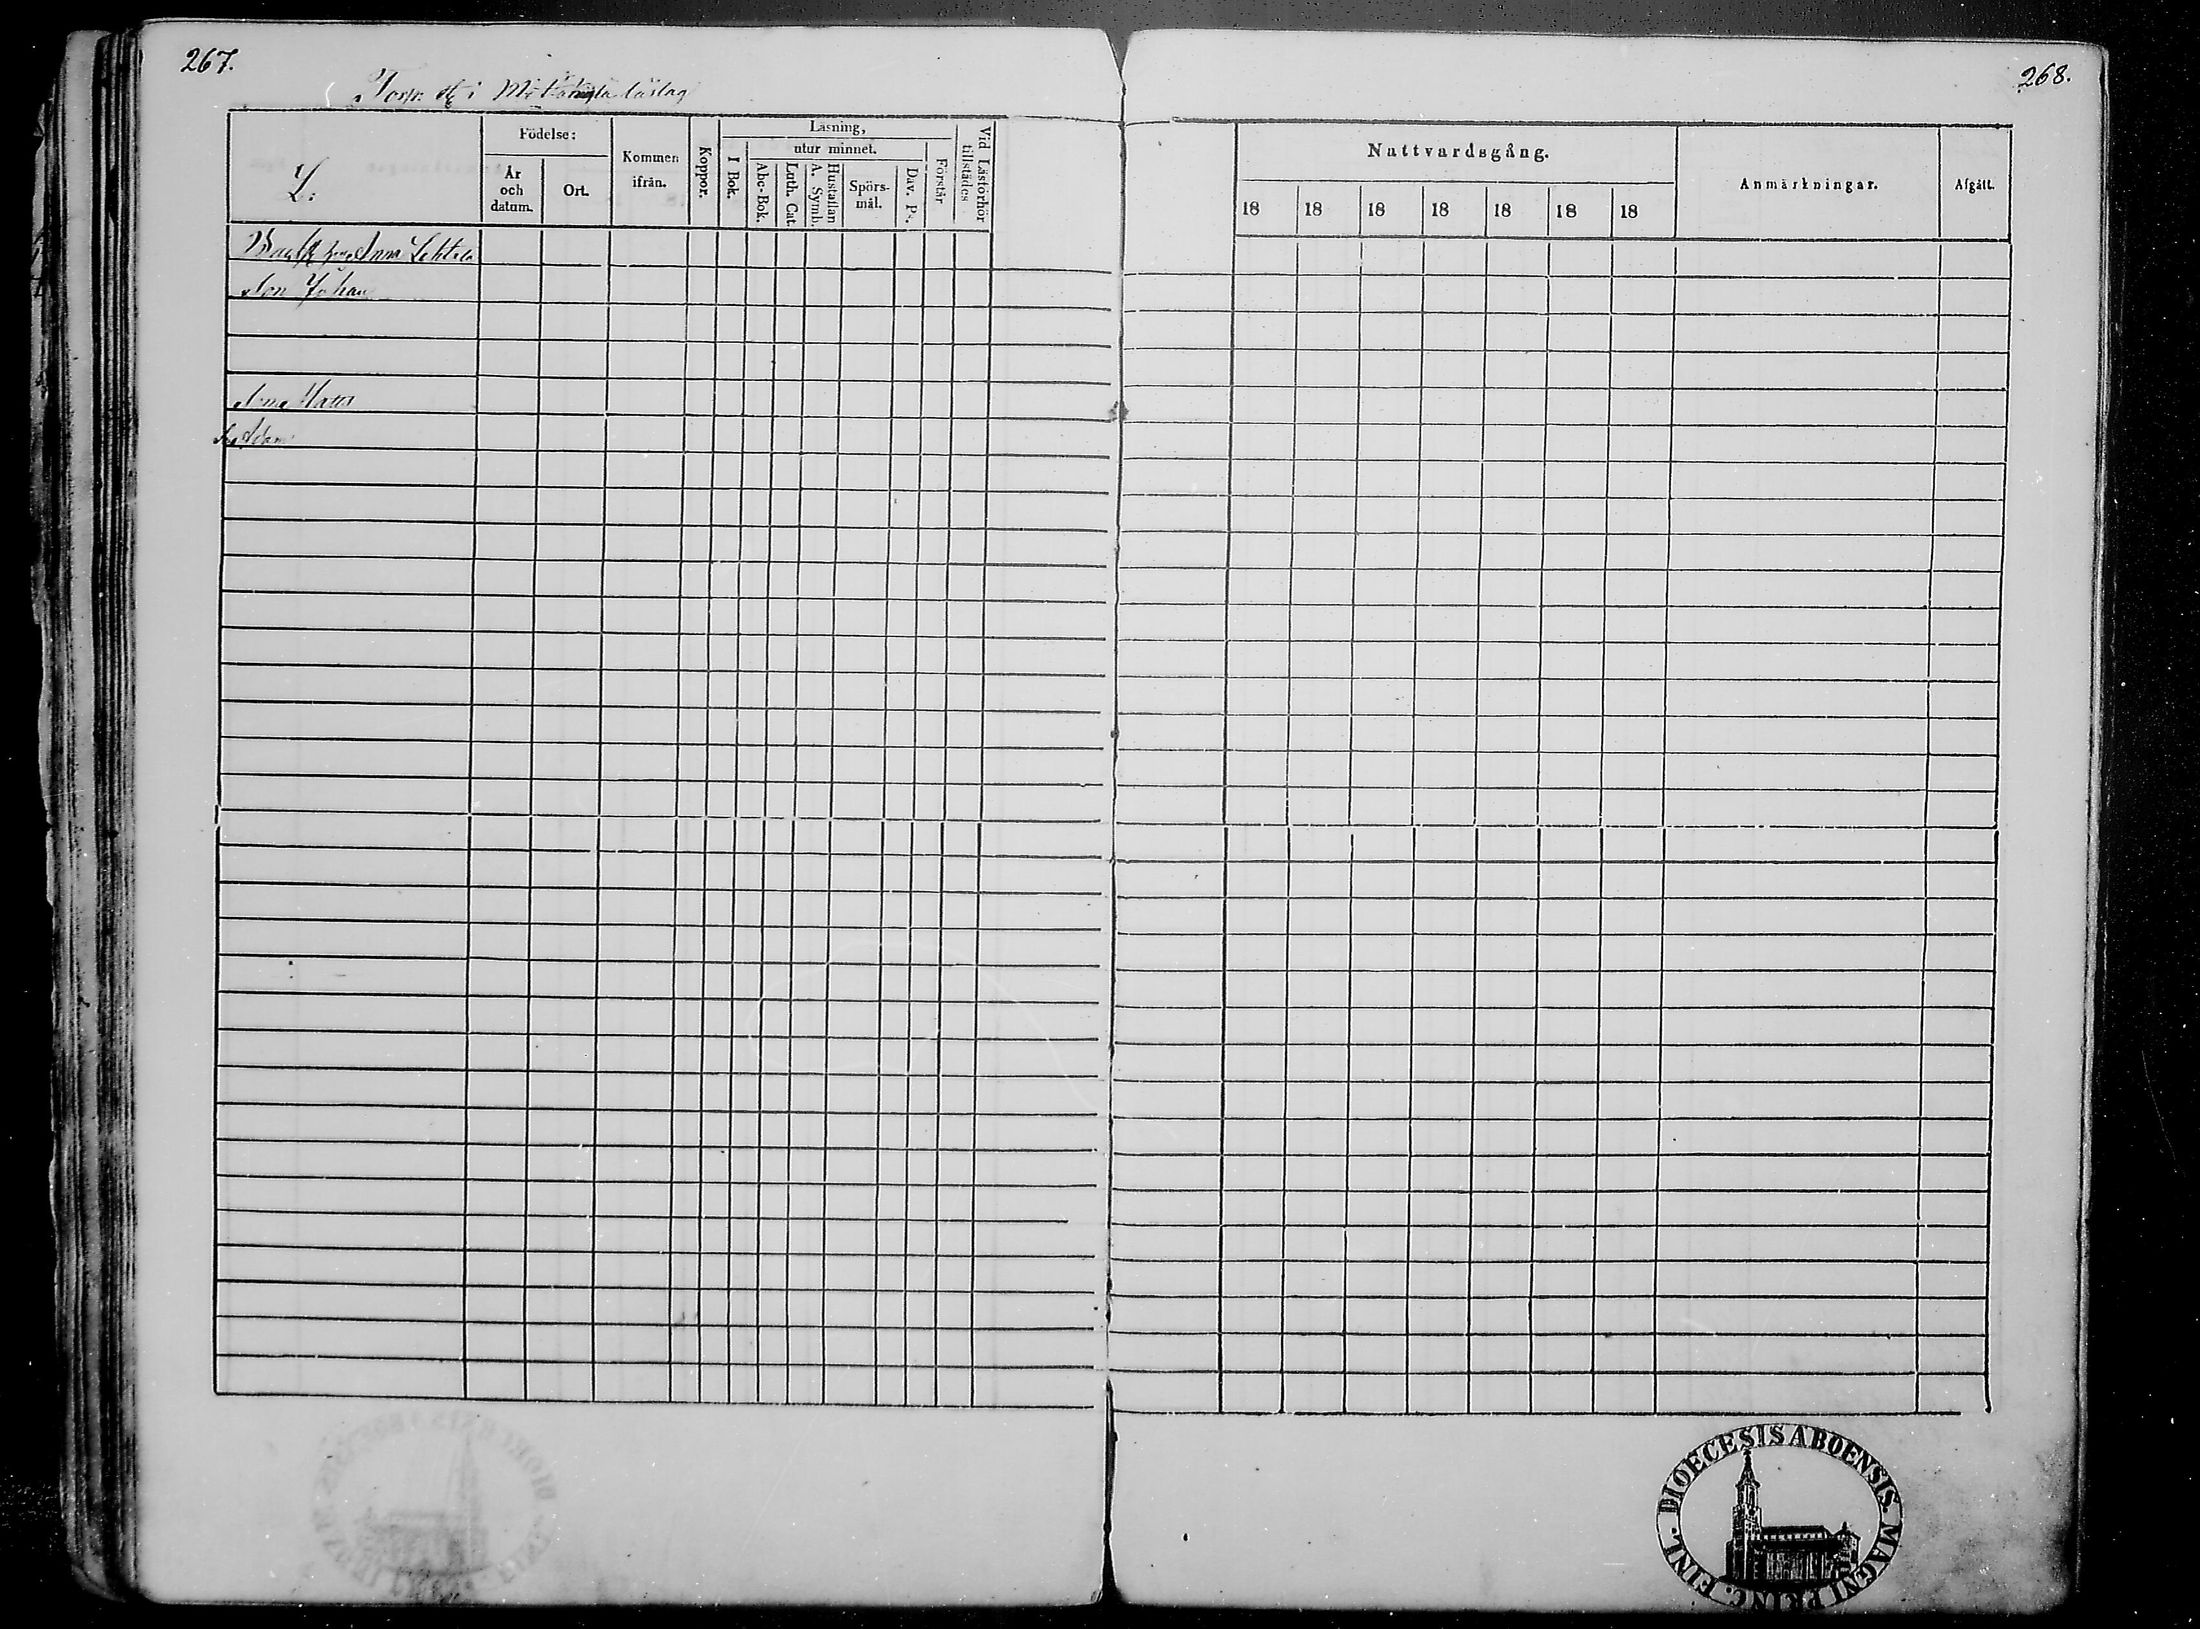 267.
268.
i läslag
L:
Födelse:
År
och
datum.
Ort.
Kommen
ifrån.
Koppor.
Läsning,
I Bok.
utur minnet.
Abc-Bok.
Luth. Cat.
Hustaflan
A. Symb.
Spörs-
mål.
Dav. Ps.
Förstår
Vid Läsförhör
tillstädes
Nattvardsgång.
18 18 18 18 18 18 18
Anmärkningar.
Afgått.
Anna Lehtela
Son Johan
Matts
Adam
DIOECESIS ABOENSIS. MAGNI PRINC. FINL.